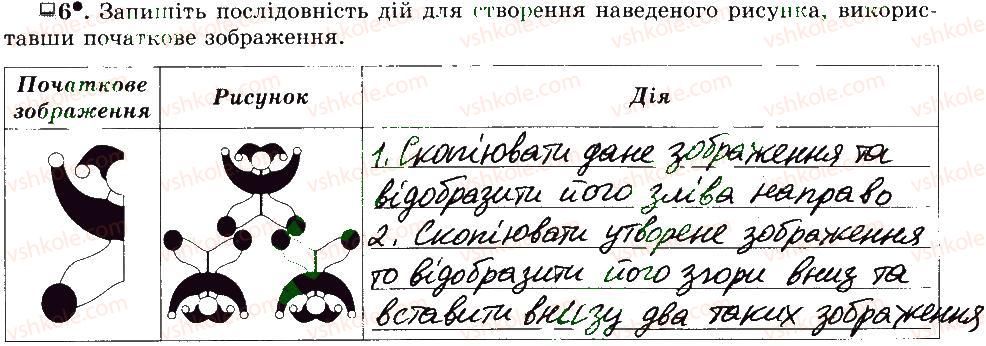 6•. Запишіть послідовність дій для створення наведеного рисунка, використавши початкове зображення.
Початкове зображення
Рисунок
Дія
1. Скопіювати дане зображення та
відобразити його зліва направо
2. Скопіювати утворене зображення
то відобразити його згори вниз та
вставити внизу два таких зображення